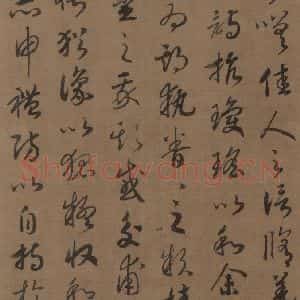 嗟佳人之信脩羌
詩抗瓊珶以和余
為期執眷々之款
靈之我欺感交甫
悵猶豫以狐疑收和
志申禮防以自持於
Shufawang.Cn